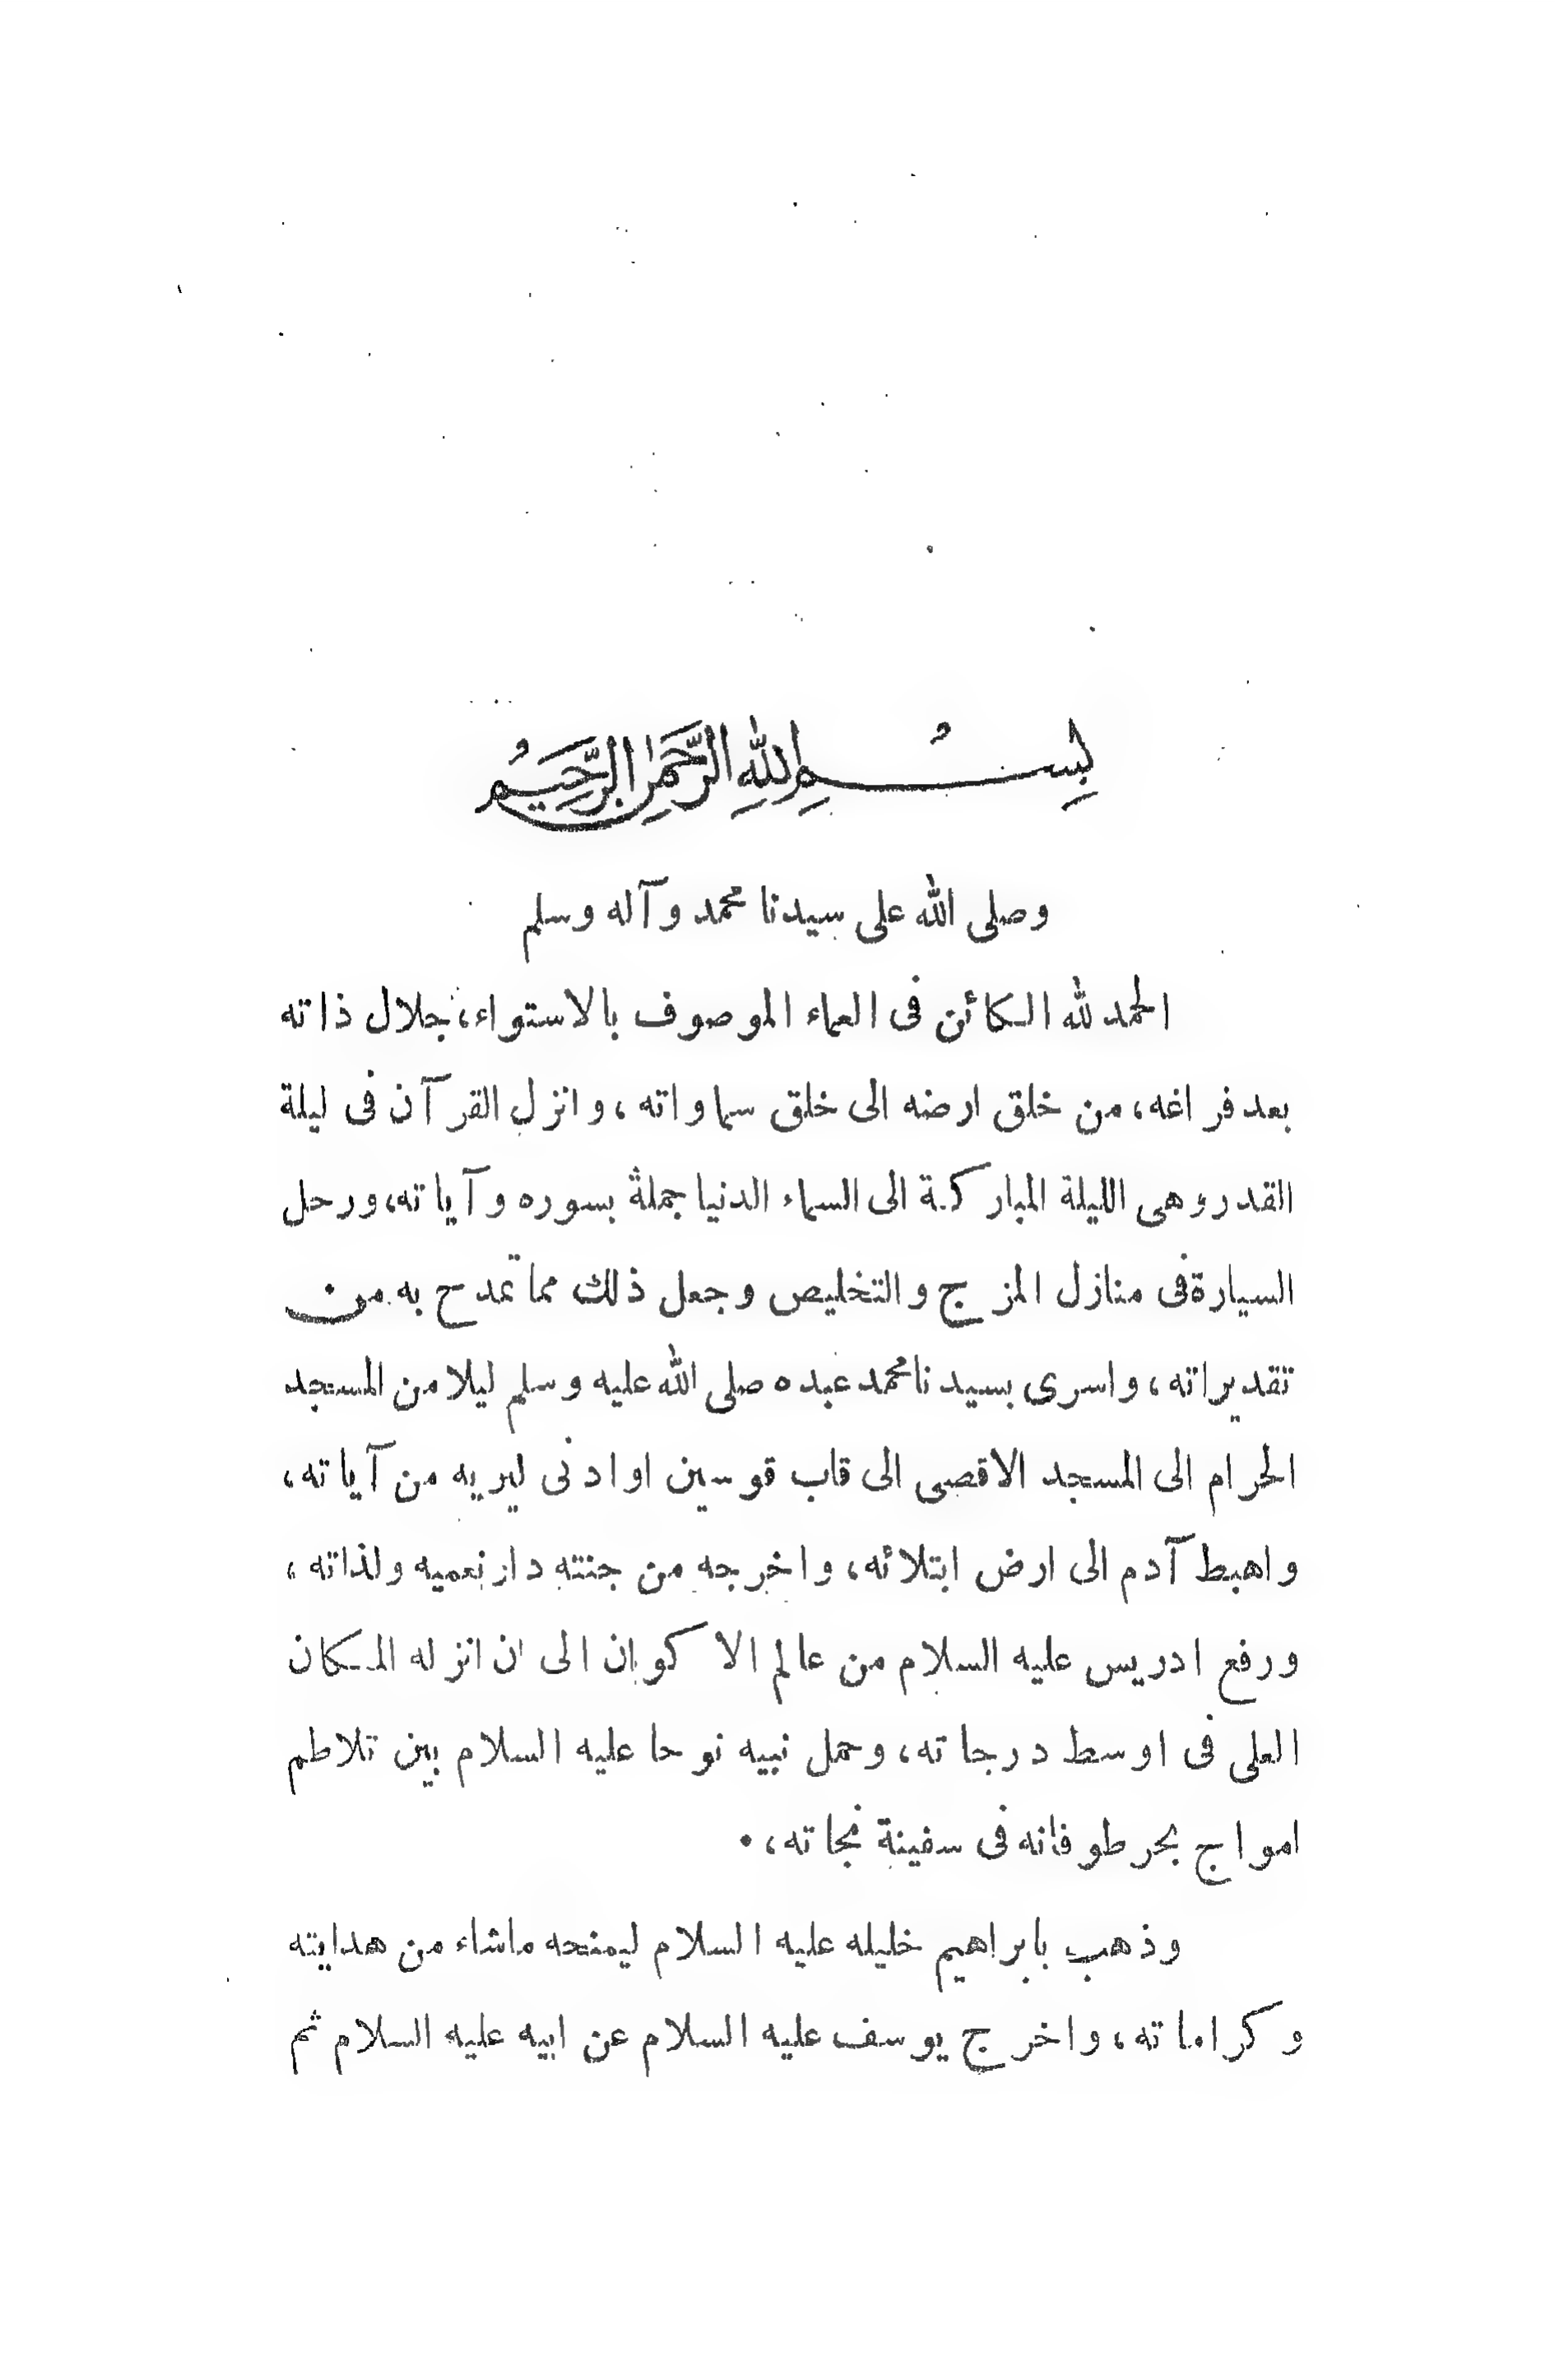 بِسْمِ اللهِ الرَّحْمٰنِ الرَّحِيْمِ
وصلى الله على سيدنا محمد وآله وسلم
الحمد لله الكائن فى العماء الموصوف بالاستواء، جلال ذاته
بعد فراغه، من خلق ارضه الى خلق سماواته، وانزل القرآن فى ليلة
القدر وهى الليلة المباركة الى السماء الدنيا جملة بسوره وآياته، ورحل
السيارة فى منازل المزج والتخليص وجعل ذلك مما تمدح به من
تقديراته، واسرى بسيدنا محمد عبده صلى الله عليه وسلم ليلا من المسجد
الحرام الى المسجد الاقصى الى قاب قوسين او ادنى ليريه من آياته،
واهبط آدم الى ارض ابتلائه، واخرجه من جنته دار نعميه ولذاته،
ورفع ادريس عليه السلام من عالم الاكوان الى ان انزله المكان
العلى فى اوسط درجاته، وحمل نبيه نوحا عليه السلام بين تلاطم
امواج بحر طوفانه فى سفينة نجاته، ٠
وذهب بابراهيم خليله عليه السلام ليمنحه ماشاء من هدايته
وكراماته، واخرج يوسف عليه السلام عن ابيه عليه السلام ثم